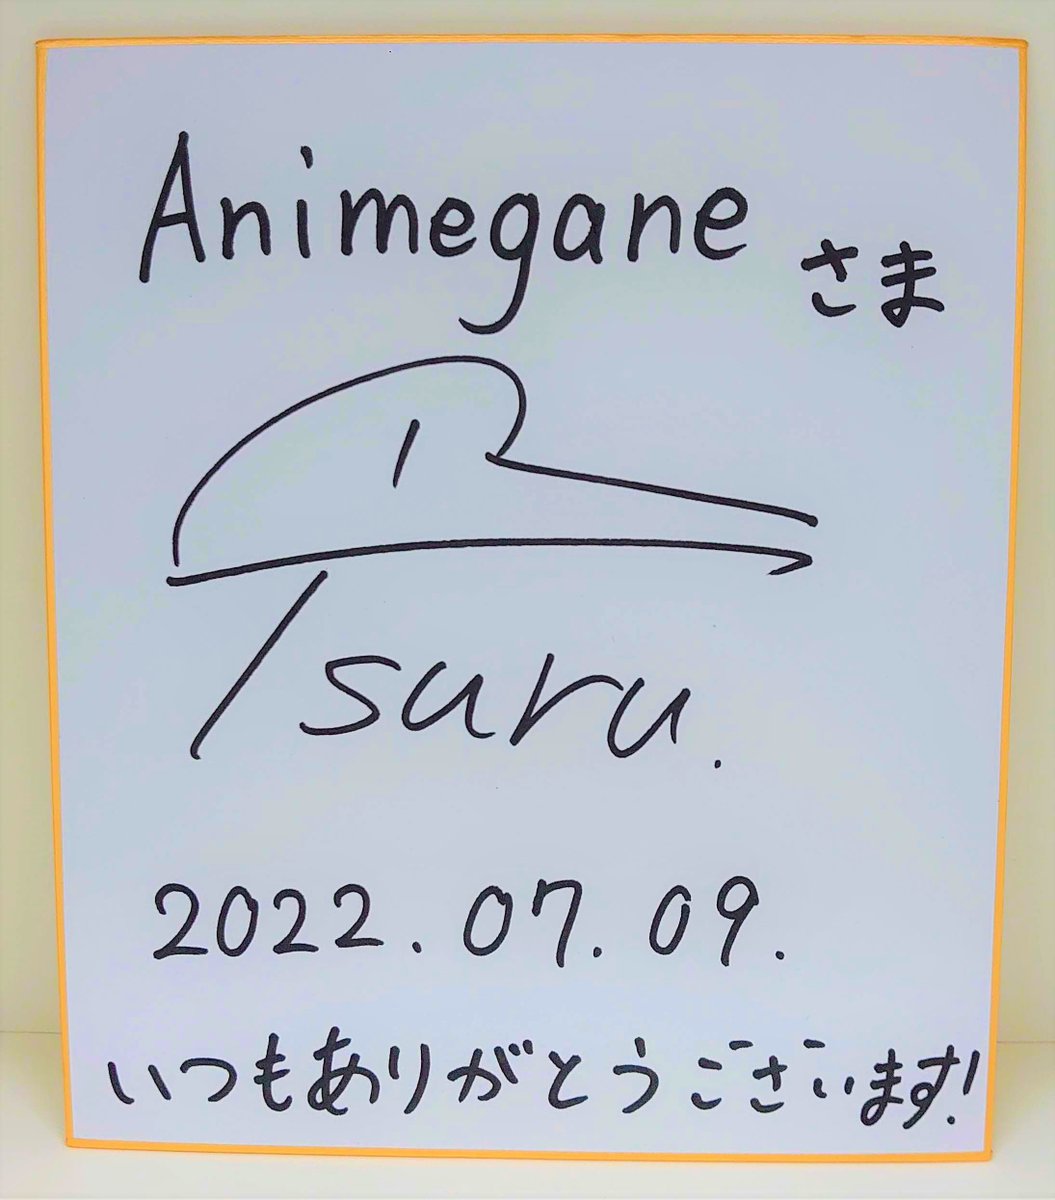 Animegane さま
Tsuru.
2022.07.09.
いつもありがとうございます!